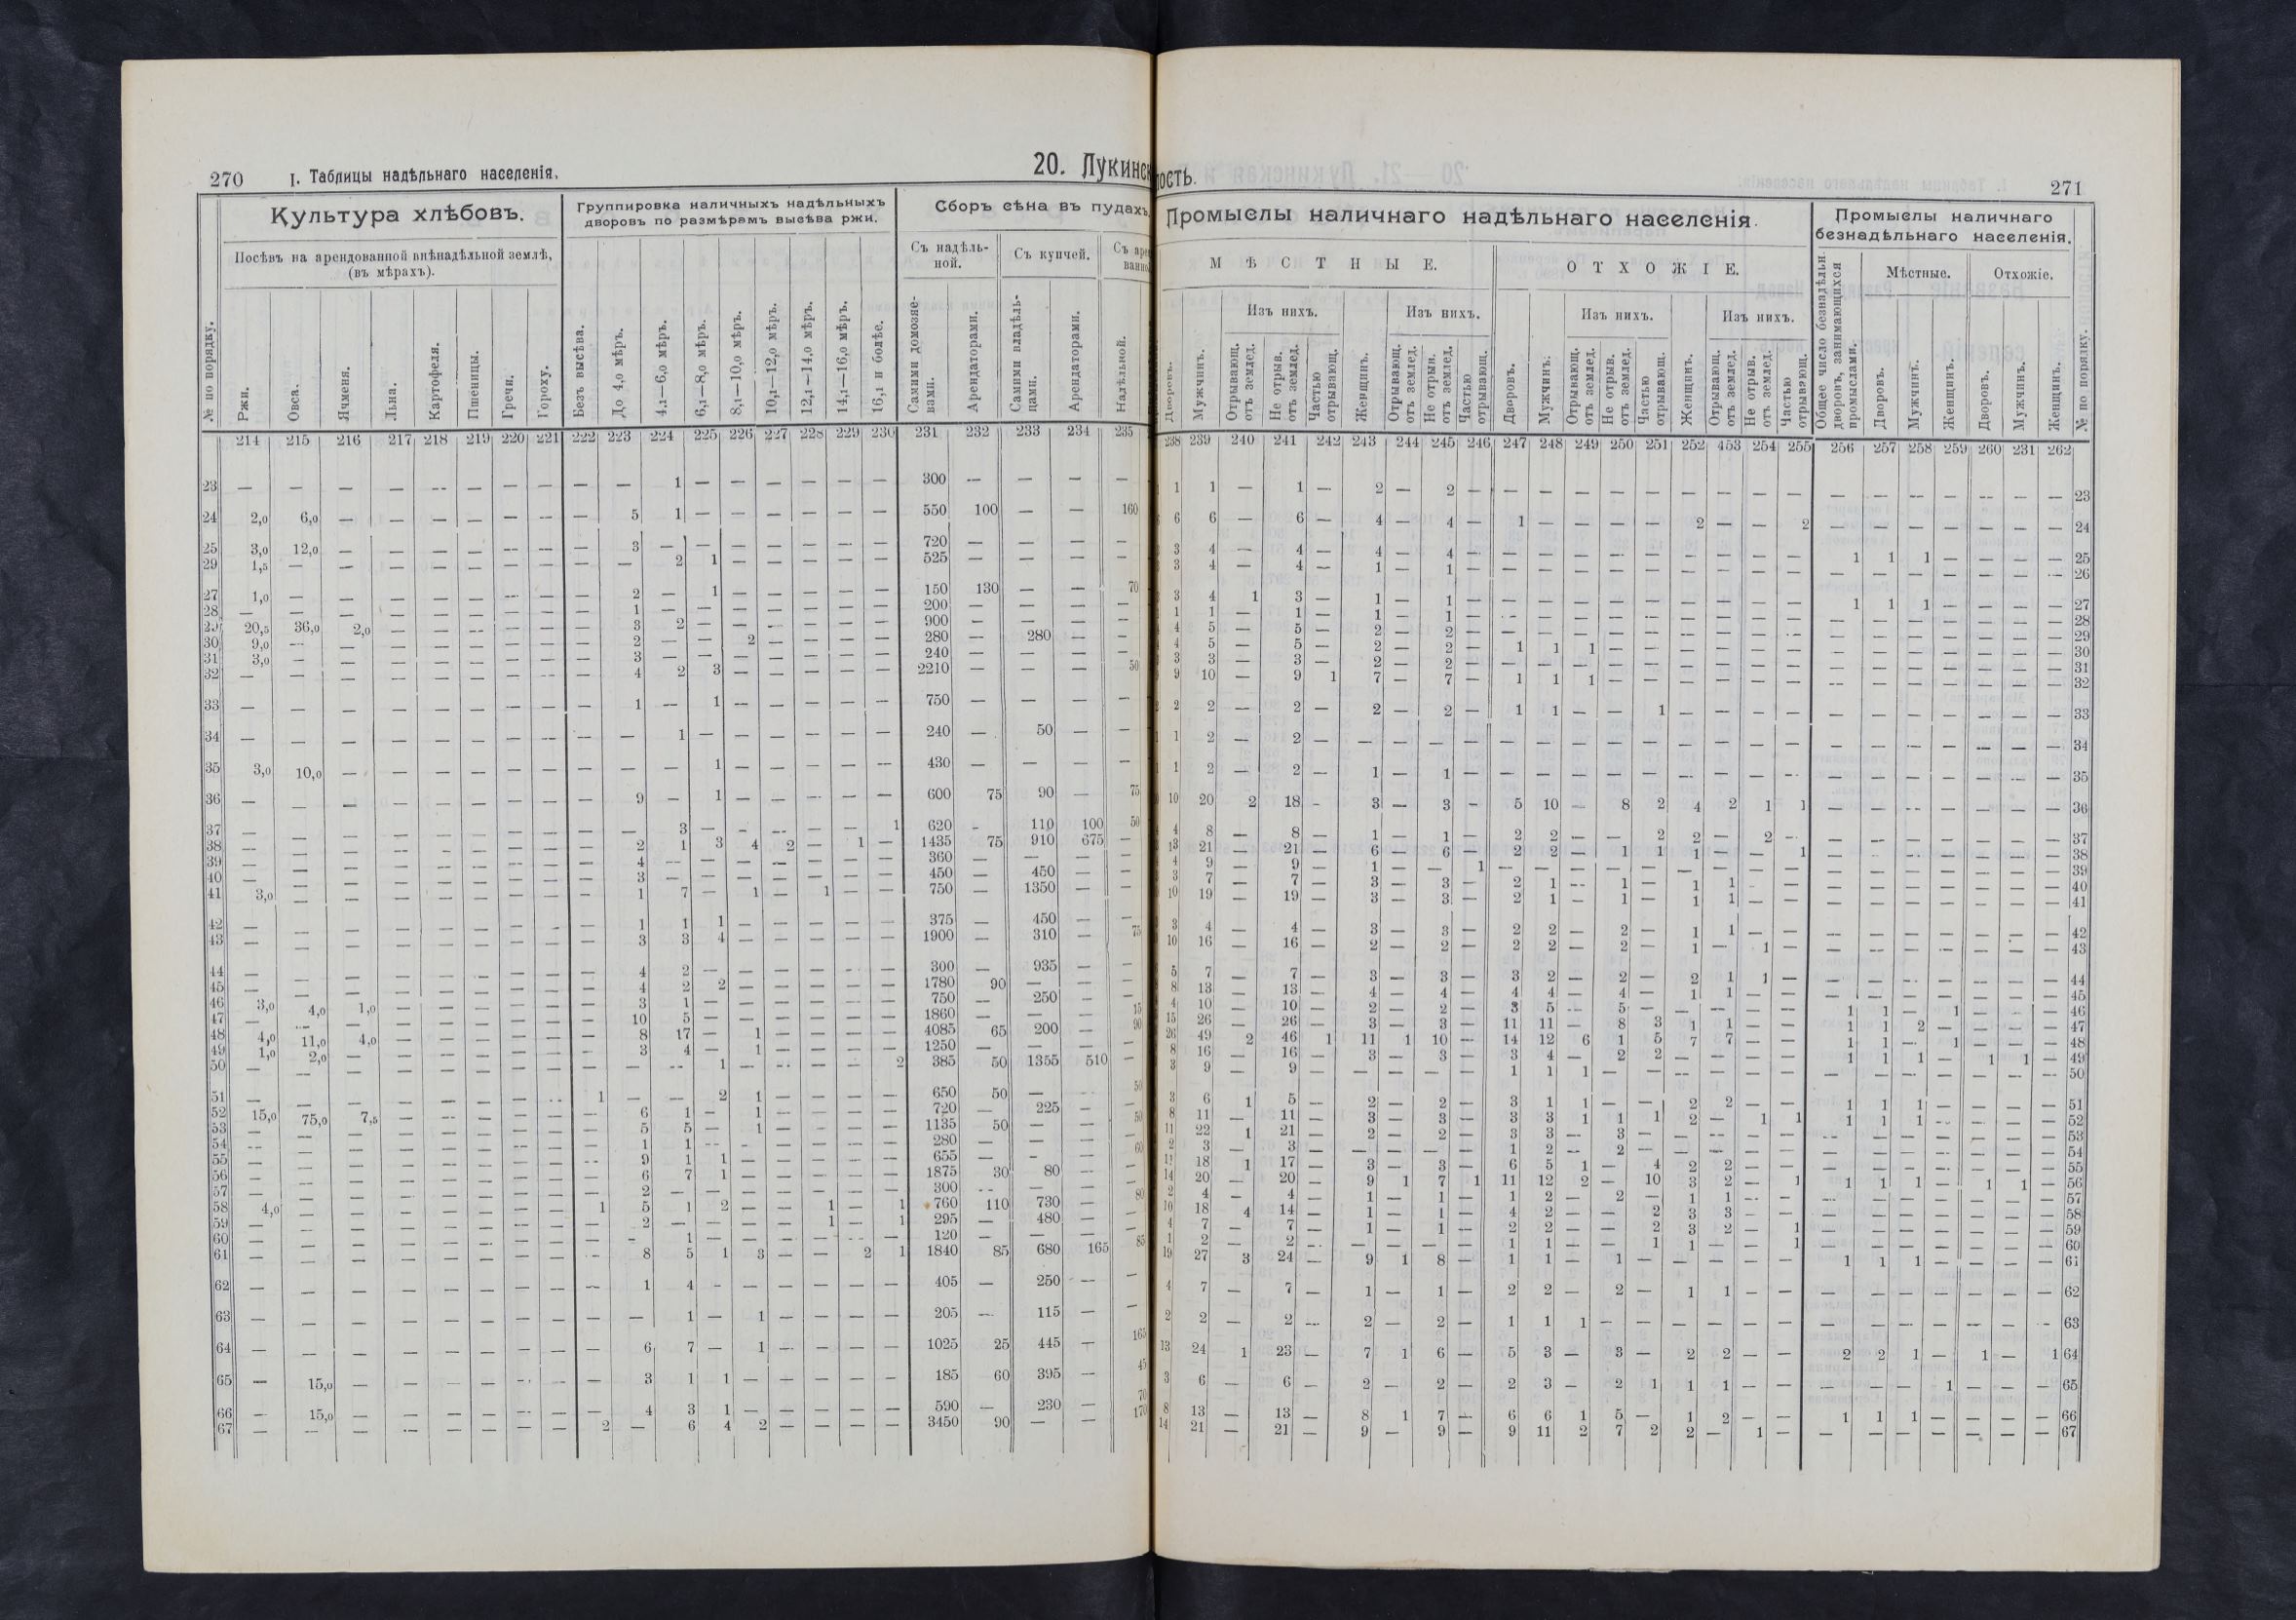 270 I. Таблицы надѣльнаго населенія.
20. Лукинск
Культура хлѣбовъ.
Посѣвъ на арендованной внѣнадѣльной землѣ,
(въ мѣрахъ).
Группировка наличныхъ надѣльныхъ
дворовъ по размѣрамъ высѣва ржи.
Сборъ сѣна въ пудахъ
Съ надѣль-
ной.
Съ купчей.
Съ аре
ванно
№ по порядку.
Ржи.
Овса.
Ячменя.
Льна.
Картофеля.
Пшеницы.
Гречи.
Гороху.
Безъ высѣва.
До 4,0 мѣръ.
4,1—6,0 мѣръ.
6,1—8,0 мѣръ.
8,1—10,0 мѣръ.
10,1—12,0 мѣръ.
12,1—14,0 мѣръ.
14,1—16,0 мѣръ.
16,1 и болѣе.
Самими домозяе-
вами.
Арендаторами.
Самими владѣль-
цами.
Арендаторами.
Надѣльной.
214 215 216 217 218 219 220 221 222 223 224 225 226 227 228 229 230 231 232 233 234 235
23 — — — — — — — — — — 1 — — — — — — 300 — — — —
24 2,0 6,0 — — — — — — — 5 1 — — — — — — 550 100 — — 160
25 3,0 12,0 — — — — — — — 3 — — — — — — — 720 — — — —
29 1,5 — — — — — — — — — 2 1 — — — — — 525 — — — —
27 1,0 — — — — — — — — 2 — 1 — — — — — 150 130 — — 70
28 — — — — — — — — — 1 — — — — — — — 200 — — — —
29 20,5 36,0 2,0 — — — — — — 3 2 — — — — — — 900 — — — —
30 9,0 — — — — — — — — 2 — — 2 — — — — 280 — 280 — —
31 3,0 — — — — — — — — 3 — — — — — — — 240 — — — —
32 — — — — — — — — — 4 2 3 — — — — — 2210 — — — 50
33 — — — — — — — — — 1 — 1 — — — — — 750 — — — —
34 — — — — — — — — — — 1 — — — — — — 240 — 50 — —
35 3,0 10,0 — — — — — — — — — 1 — — — — — 430 — — — —
36 — — — — — — — — — 9 — 1 — — — — — 600 75 90 — 75
37 — — — — — — — — — — 3 — — — — — 1 620 - 110 100 50
38 — — — — — — — — — 2 1 3 4 2 — 1 — 1435 75 910 675 —
39 — — — — — — — — — 4 — — — — — — — 360 — — — —
40 — — — — — — — — — 3 — — — — — — — 450 — 450 — —
41 3,0 — — — — — — — — 1 7 — 1 — 1 — — 750 — 1350 — —
42 — — — — — — — — — 1 1 1 — — — — — 375 — 450 — —
43 — — — — — — — — — 3 3 4 — — — — — 1900 — 310 — 75
44 — — — — — — — — — 4 2 — — — — — — 300 — 935 — —
45 — — — — — — — — — 4 2 2 — — — — — 1780 90 — — —
46 3,0 4,0 1,0 — — — — — — 3 1 — — — — — — 750 — 250 — —
47 — — — — — — — — — 10 5 — — — — — — 1860 — — — 15
48 4,0 11,0 4,0 — — — — — — 8 17 — 1 — — — — 4085 65 200 — 90
49 1,0 2,0 — — — — — — — 3 4 — 1 — — — — 1250 — — — —
50 — — — — — — — — — — — 1 — — — — 2 385 50 1355 510 —
51 — — — — — — — — 1 — — 2 1 — — — — 650 50 — — 50
52 15,0 75,0 7,5 — — — — — — 6 1 — 1 — — — — 720 — 225 — —
53 — — — — — — — — — 5 5 — 1 — — — — 1135 50 — — 50
54 — — — — — — — — — 1 1 — — — — — — 280 — — — —
55 — — — — — — — — — 9 1 1 — — — — — 655 — — — 60
56 — — — — — — — — — 6 7 1 — — — — — 1875 30 80 — —
57 — — — — — — — — — 2 — — — — — — — 300 — — — —
58 4,0 — — — — — — — 1 5 1 2 — — 1 — 1 760 110 730 — 80
59 — — — — — — — — — 2 — — — — 1 — 1 295 — 480 — —
60 — — — — — — — — — — 1 — — — — — — 120 — — — —
61 — — — — — — — — — 8 5 1 3 — — 2 1 1840 85 680 165 85
62 — — — — — — — — — 1 4 — — — — — — 405 — 250 — —
63 — — — — — — — — — — 1 — 1 — — — — 205 — 115 — —
64 — — — — — — — — — 6 7 — 1 — — — — 1025 25 445 — 165
65 — 15,0 — — — — — — — 3 1 1 — — — — — 185 60 395 — 45
66 — 15,0 — — — — — — — 4 3 1 — — — — — 590 — 230 — 70
67 — — — — — — — — 2 — 6 4 2 — — — — 3450 90 — — 170
ость.
271
Промыслы наличнаго надѣльнаго населенія.
Промыслы наличнаго
безнадѣльнаго населенія.
МѢСТНЫЕ.
ОТХОЖІЕ.
Мѣстные.
Отхожіе.
Изъ нихъ.
Изъ нихъ.
Изъ нихъ.
Изъ нихъ.
Дворовъ.
Мужчинъ.
Отрывающ.
отъ землед.
Не отрыв.
отъ землед.
Частью
отрывающ.
Женщинъ.
Отрывающ.
отъ землед.
Не отрыв.
отъ землед.
Частью
отрывающ.
Дворовъ.
Мужчинъ.
Отрывающ.
отъ землед.
Не отрыв.
отъ землед.
Частью
отрывающ.
Женщинъ.
Отрывающ.
отъ землед.
Не отрыв.
отъ землед.
Частью
отрывающ.
Общее число безнадѣльн.
дворовъ, занимающихся
промыслами.
Дворовъ.
Мужчинъ.
Женщинъ.
Дворовъ.
Мужчинъ.
Женщинъ.
№ по порядку.
238 239 240 241 242 243 244 245 246 247 248 249 250 251 252 453 254 255 256 257 258 259 260 231 262
1 1 — 1 — 2 — 2 — — — — — — — — — — — — — — — — — 23
6 6 — 6 — 4 — 4 — 1 — — — — 2 — — 2 — — — — — — — 24
3 4 — 4 — 4 — 4 — — — — — — — — — — 1 1 1 — — — — 25
3 4 — 4 — 1 — 1 — — — — — — — — — — — — — — — — — 26
3 4 1 3 — 1 — 1 — — — — — — — — — — 1 1 1 — — — — 27
1 1 — 1 — 1 — 1 — — — — — — — — — — — — — — — — — 28
4 5 — 5 — 2 — 2 — — — — — — — — — — — — — — — — — 29
4 5 — 5 — 2 — 2 — 1 1 1 — — — — — — — — — — — — — 30
3 3 — 3 — 2 — 2 — — — — — — — — — — — — — — — — — 31
9 10 — 9 1 7 — 7 — 1 1 1 — — — — — — — — — — — — — 32
2 2 — 2 — 2 — 2 — 1 1 — — 1 — — — — — — — — — — — 33
1 2 — 2 — — — — — — — — — — — — — — — — — — — — — 34
1 2 — 2 — 1 — 1 — — — — — — — — — — — — — — — — — 35
10 20 2 18 - 3 — 3 - 5 10 — 8 2 4 2 1 1 — — — — — — — 36
4 8 — 8 — 1 — 1 — 2 2 — — 2 2 — 2 — — — — — — — — 37
13 21 — 21 — 6 — 6 — 2 2 — 1 1 1 — — 1 — — — — — — — 38
4 9 — 9 — 1 — — 1 — — — — — — — — — — — — — — — — 39
3 7 — 7 — 3 — 3 — 2 1 — 1 — 1 1 — — — — — — — — — 40
10 19 — 19 — 3 — 3 — 2 1 — 1 — 1 1 — — — — — — — — — 41
3 4 — 4 — 3 — 3 — 2 2 — 2 — 1 1 — — — — — — — — — 42
10 16 — 16 — 2 — 2 — 2 2 — 2 — 1 — 1 — — — — — — — — 43
5 7 — 7 — 3 — 3 — 3 2 — 2 — 2 1 1 — — — — — — — — 44
8 13 — 13 — 4 — 4 — 4 4 — 4 — 1 1 — — — — — — — — — 45
4 10 — 10 — 2 — 2 — 3 5 — 5 — — — — — 1 1 — 1 — — — 46
15 26 — 26 — 3 — 3 — 11 11 — 8 3 1 1 — — 1 1 2 — — — — 47
26 49 2 46 1 11 1 10 — 14 12 6 1 5 7 7 — — 1 1 — 1 — — — 48
8 16 — 16 — 3 — 3 — 3 4 — 2 2 — — — — 1 1 1 — 1 1 — 49
3 9 — 9 — — — — — 1 1 1 — — — — — — — — — — — — — 50
3 6 1 5 — 2 — 2 — 3 1 1 — — 2 2 — — 1 1 1 — — — — 51
8 11 — 11 — 3 — 3 — 3 3 1 1 1 2 — 1 1 1 1 1 — — — — 52
11 22 1 21 — 2 — 2 — 3 3 — 3 — — — — — — — — — — — — 53
2 3 — 3 — — — — — 1 2 — 2 — — — — — — — — — — — — 54
12 18 1 17 — 3 — 3 — 6 5 1 — 4 2 2 — — — — — — — — — 55
14 20 — 20 — 9 1 7 1 11 12 2 — 10 3 2 — 1 1 1 1 — 1 1 — 56
2 4 — 4 — 1 — 1 — 1 2 — 2 — 1 1 — — — — — — — — — 57
10 18 4 14 — 1 — 1 — 4 2 — — 2 3 3 — — — — — — — — — 58
4 7 — 7 — 1 — 1 — 2 2 — — 2 3 2 — 1 — — — — — — — 59
1 2 — 2 — — — — — 1 1 — — 1 1 — — 1 — — — — — — — 60
19 27 3 24 — 9 1 8 — 1 1 — 1 — — — — — 1 1 1 — — — — 61
4 7 — 7 — 1 — 1 — 2 2 — 2 — 1 1 — — — — — — — — — 62
2 2 — 2 — 2 — 2 — 1 1 1 — — — — — — — — — — — — — 63
13 24 1 23 — 7 1 6 — 5 3 — 3 — 2 2 — — 2 2 1 — 1 — 1 64
3 6 — 6 — 2 — 2 — 2 3 — 2 1 1 1 — — — — — 1 — — — 65
8 13 — 13 — 8 1 7 — 6 6 1 5 — 1 2 — — 1 1 1 — — — — 66
14 21 — 21 — 9 — 9 — 9 11 2 7 2 2 — 1 — — — — — — — — 67